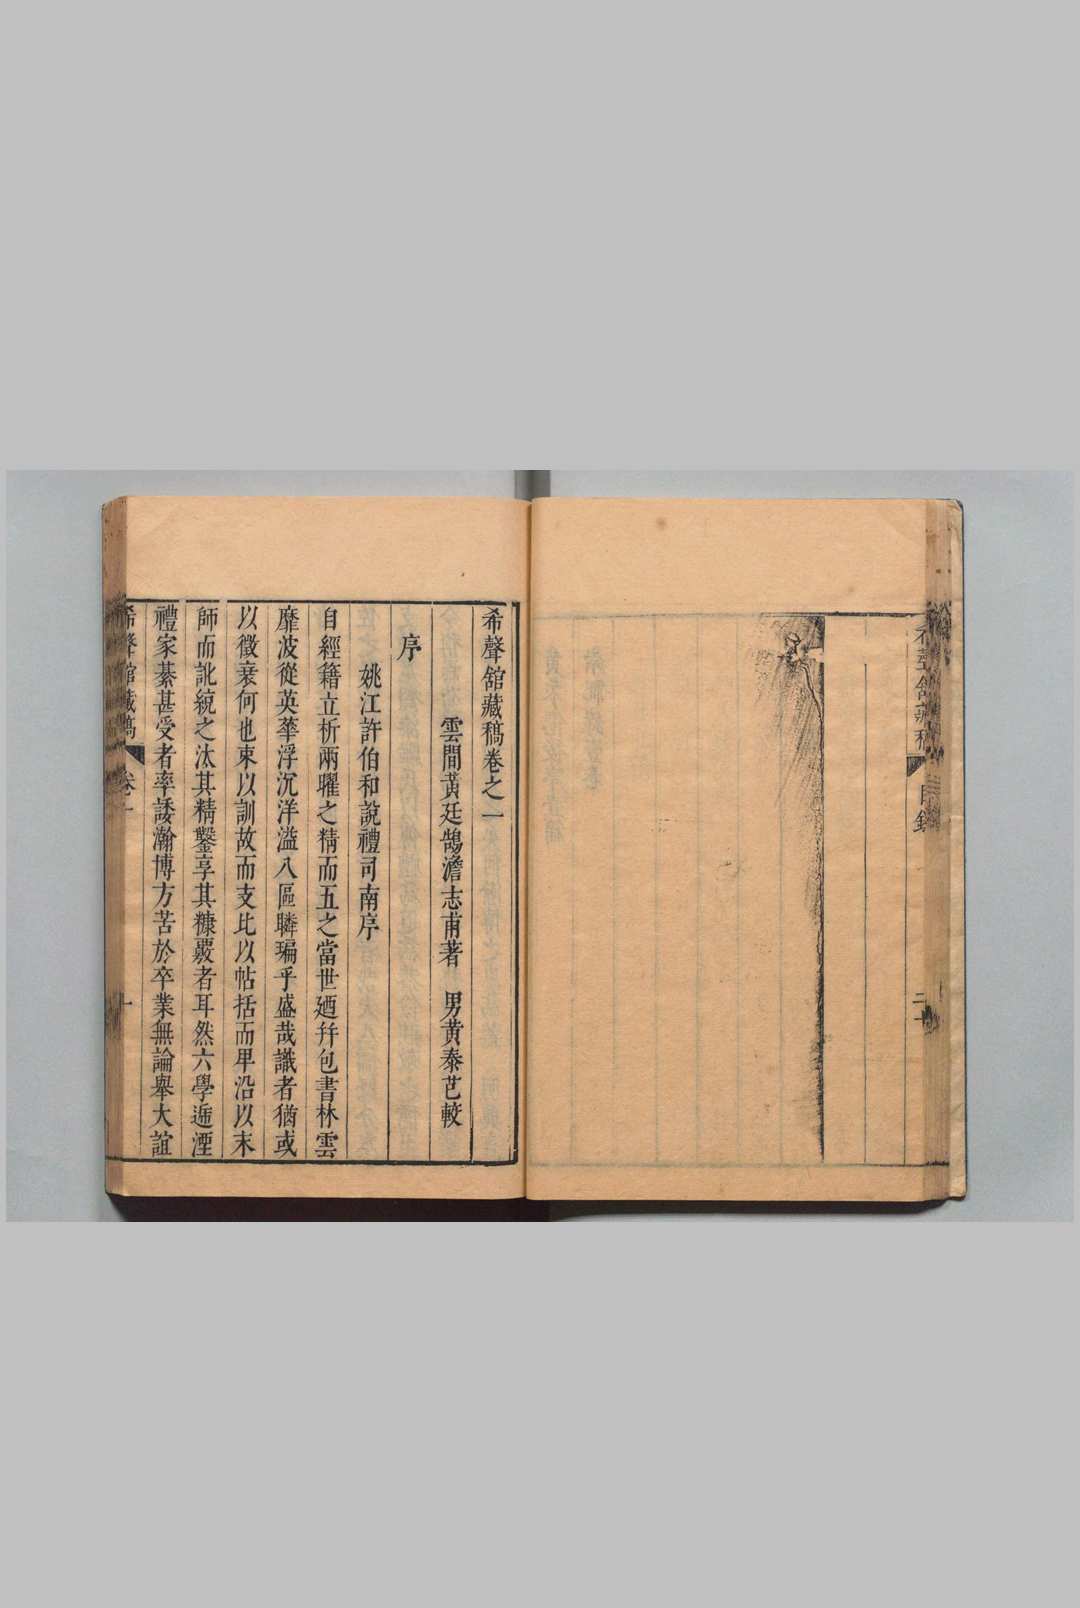 希聲舘藏稿
目錄
二十
希聲舘藏稿卷之一
雲間黃廷鵠澹志甫著　男黄泰芑較
序
姚江許伯和說禮司南序
自經籍立析兩曜之精而五之當世廼幷包書林雲
靡波從英華浮沉洋溢八區瞵㻞乎盛哉識者猶或
以徵衰何也束以訓故而支比以帖括而卑沿以末
師而訛綂之汰其精鑿享其糠覈者耳然六學遞湮
禮家綦甚受者率諉瀚博方苦於卒業無論舉大誼
希聲舘藏稿
卷一
一